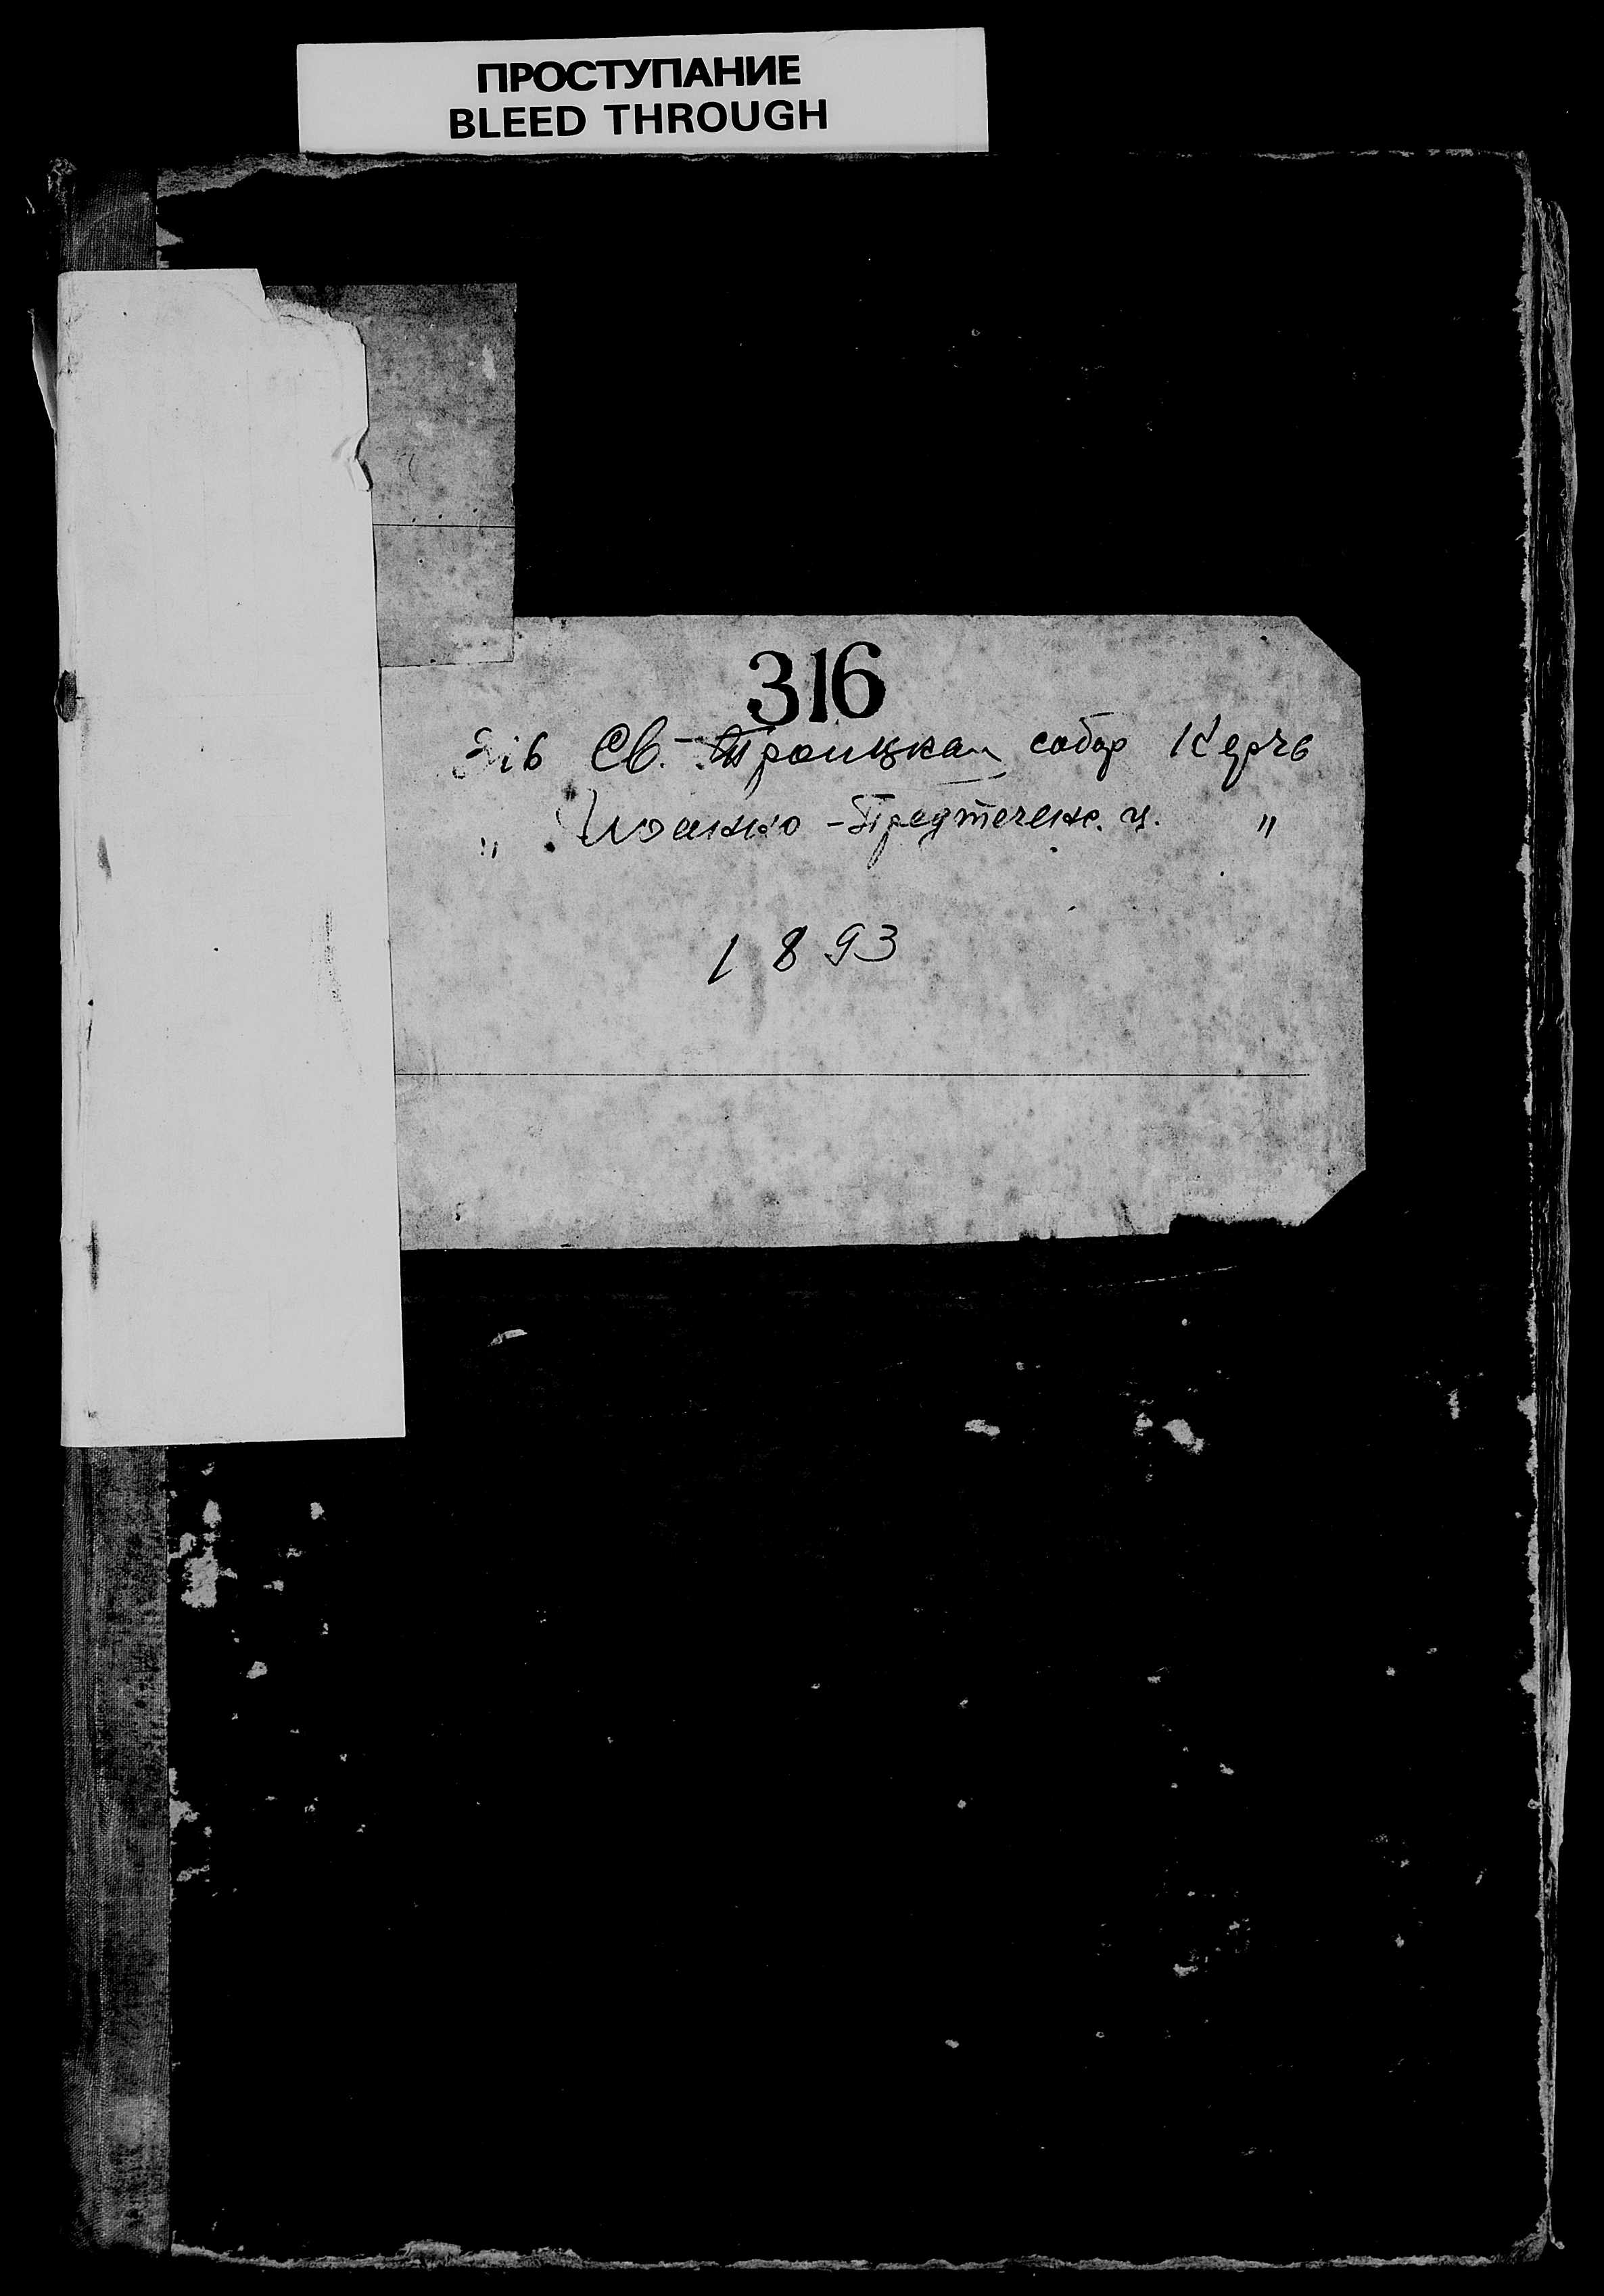 ПРОСТУПАНИЕ
BLEED THROUGH
316
316 Св.-Троицкая собор Керчь
" Иоанно-Предтеченс. ц. "
1893